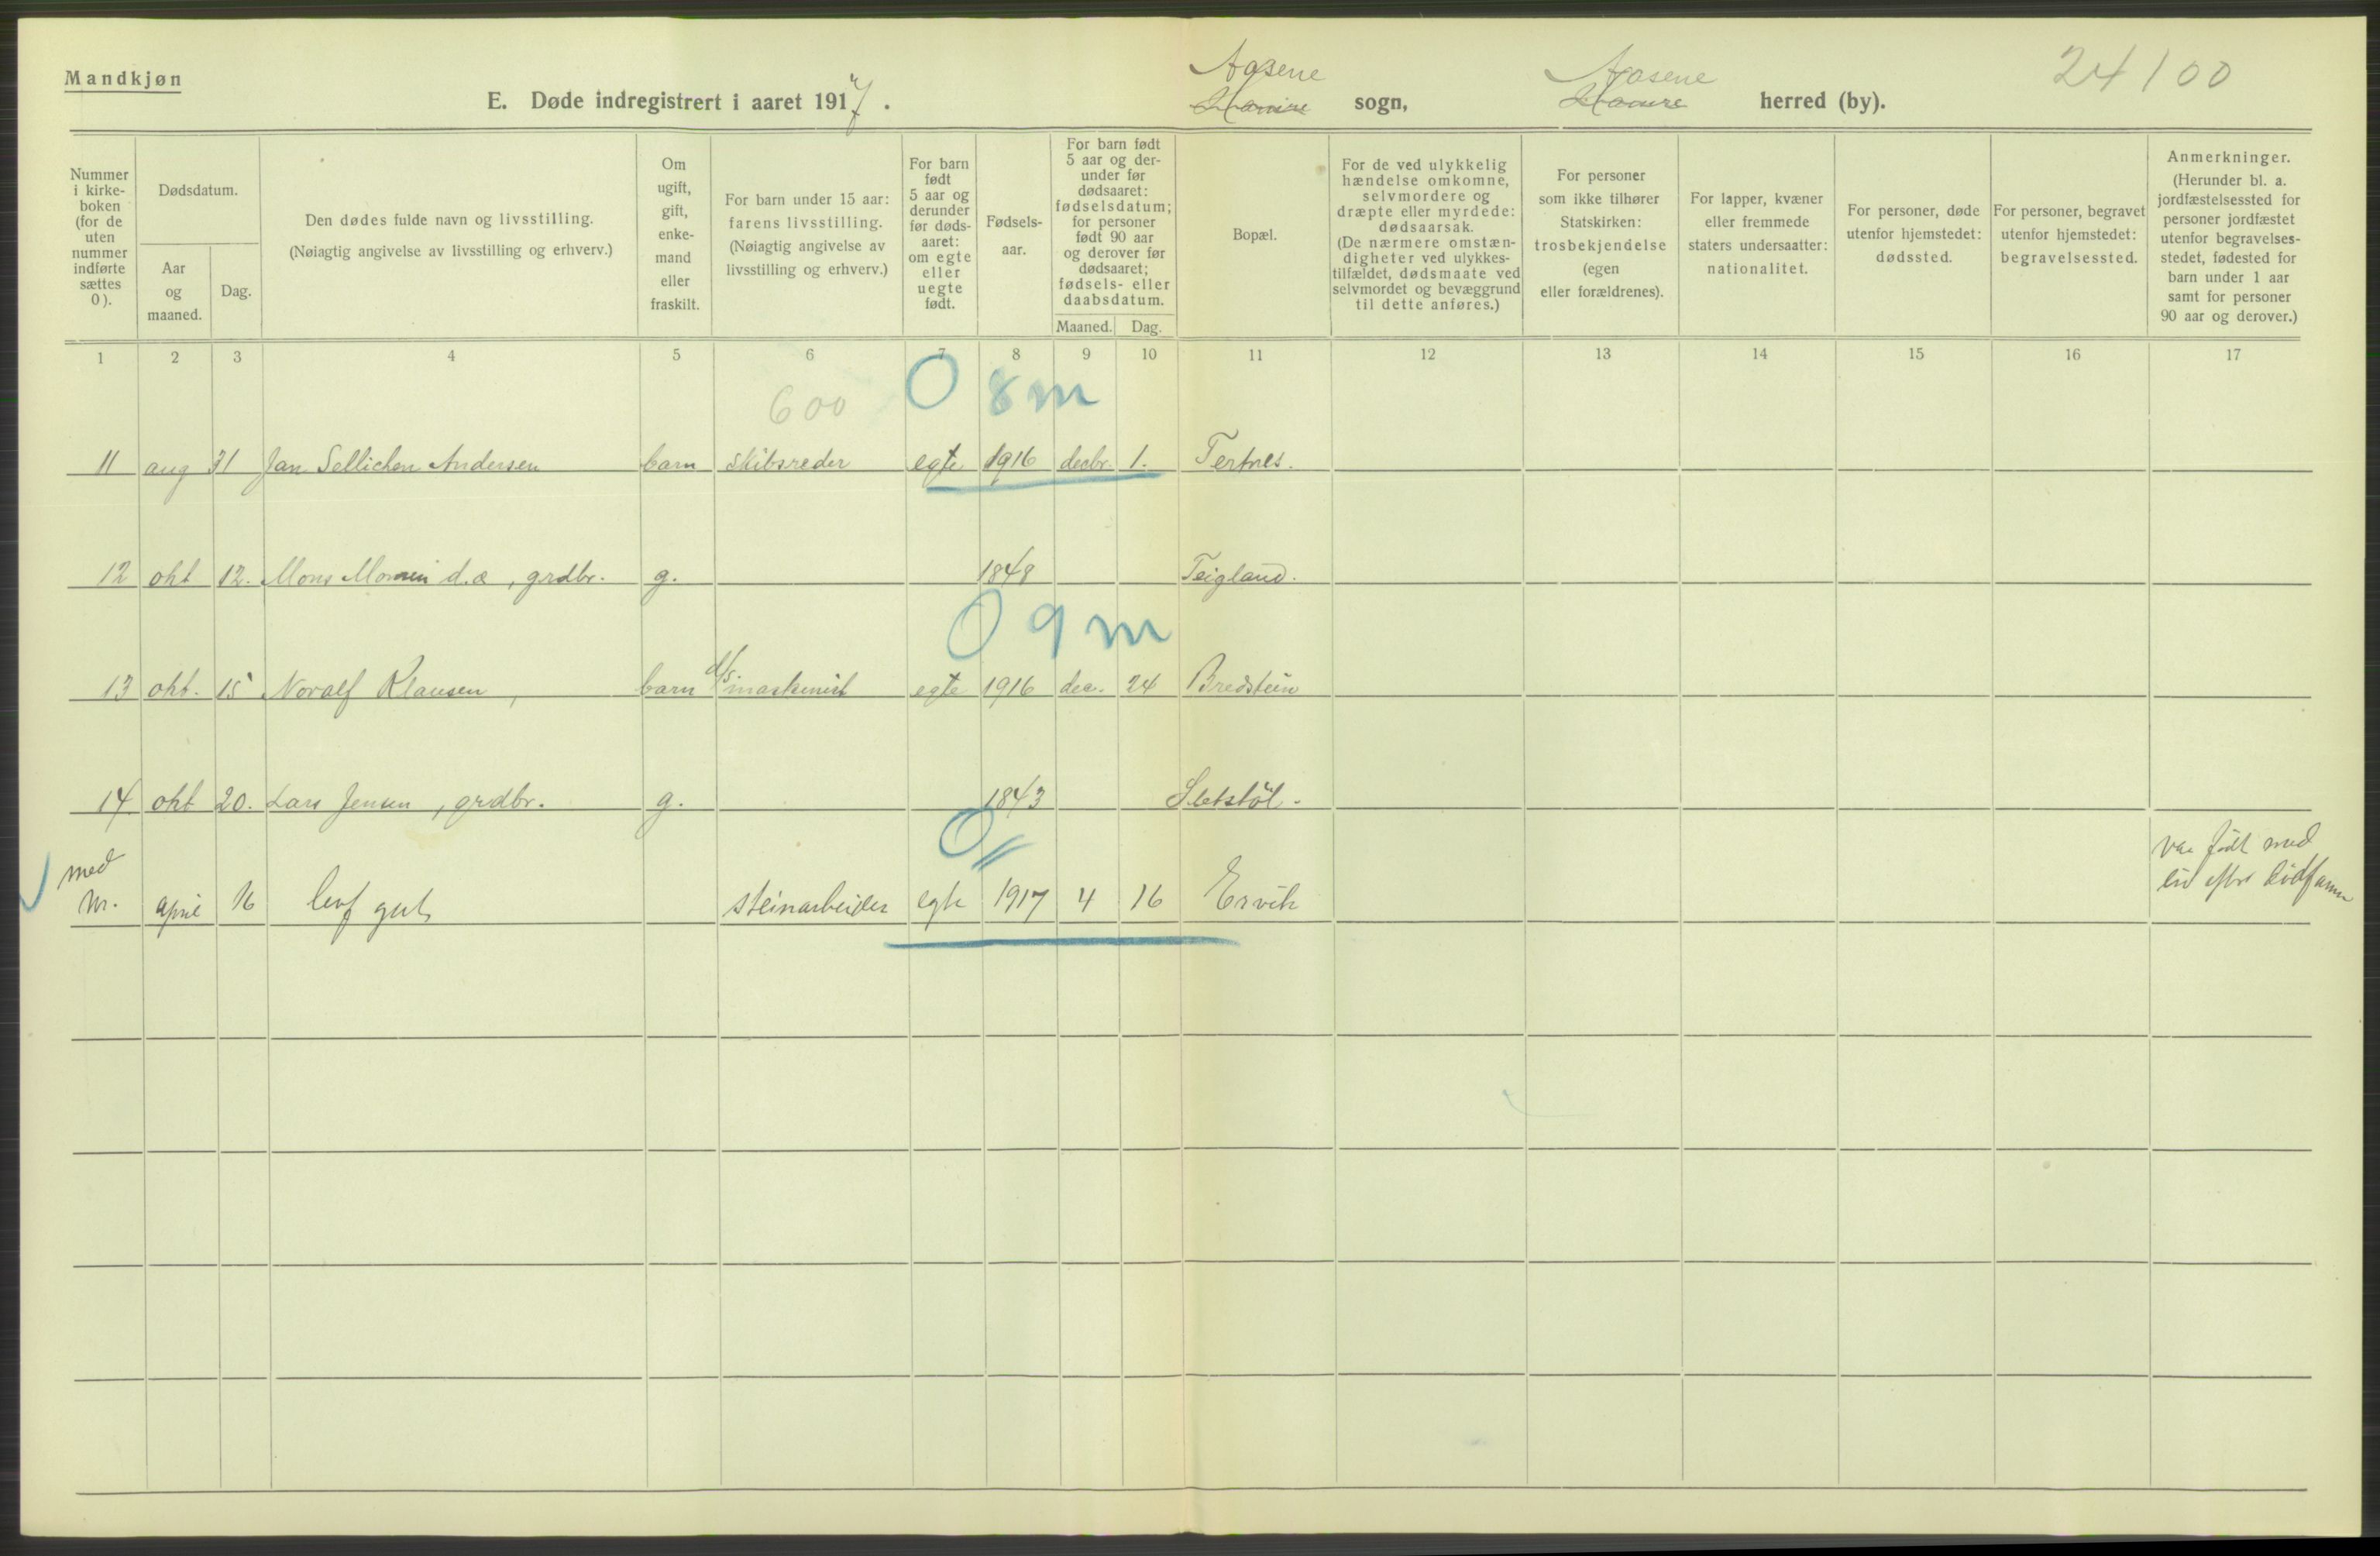 Mandkjøn
E. Døde indregistrert i aaret 1917. Aasene sogn, Aasene herred (by). 24/00
Nummer i kirke- boken (for de uten nummer indførte sættes 0).
Dødsdatum.
Aar og maaned.
Dag.
Den dødes fulde navn og livsstilling.
(Nøiagtig angivelse av livsstilling og erhverv.)
Om ugift, gift, enke- mand eller fraskilt.
For barn under 15 aar: farens livsstilling. (Nøiagtig angivelse av livsstilling og erhverv.)
For barn født 5 aar og derunder før døds- aaret: om egte eller uegte født.
Fødsels- aar.
For barn født 5 aar og der- under før dødsaaret: fødselsdatum; for personer født 90 aar og derover før dødsaaret; fødsels- eller daabsdatum.
Maaned. Dag.
Bopæl.
For de ved ulykkelig hændelse omkomne, selvmordere og dræpte eller myrdede: dødsaarsak. (De nærmere omstæn- digheter ved ulykkes- tilfældet, dødsmaate ved selvmordet og bevæggrund til dette anføres.)
For personer som ikke tilhører Statskirken: trosbekjendelse (egen eller forældrenes).
For lapper, kvæner eller fremmede staters undersaatter: nationalitet.
For personer, døde utenfor hjemstedet: dødssted.
For personer, begravet utenfor hjemstedet: begravelsessted.
Anmerkninger. (Herunder bl. a. jordfæstelsessted for personer jordfæstet utenfor begravelses- stedet, fødested for barn under 1 aar samt for personer 90 aar og derover.)
1 2 3 4 5 6 7 8 9 10 11 12 13 14 15 16 17
600 0 8 m
11 aug 31 Jan Sellichen Andersen barn skibsreder egte 1916 decbr. 1. Tertnes.
12 okt 12. Mons Monsen d.æ, grdbr. g. 1848 Teigland.
0 9 m
13 okt. 15 Noralf Klausen, barn d/s maskinist egte 1916 dec. 24 Bredstein
14 okt 20. Lars Jensen, grdbr. g. 1843 Sletstøl.
0
med nr. april 16 gut steinarbeider egte 1917 4 16 Ervik
var født med
liv efter